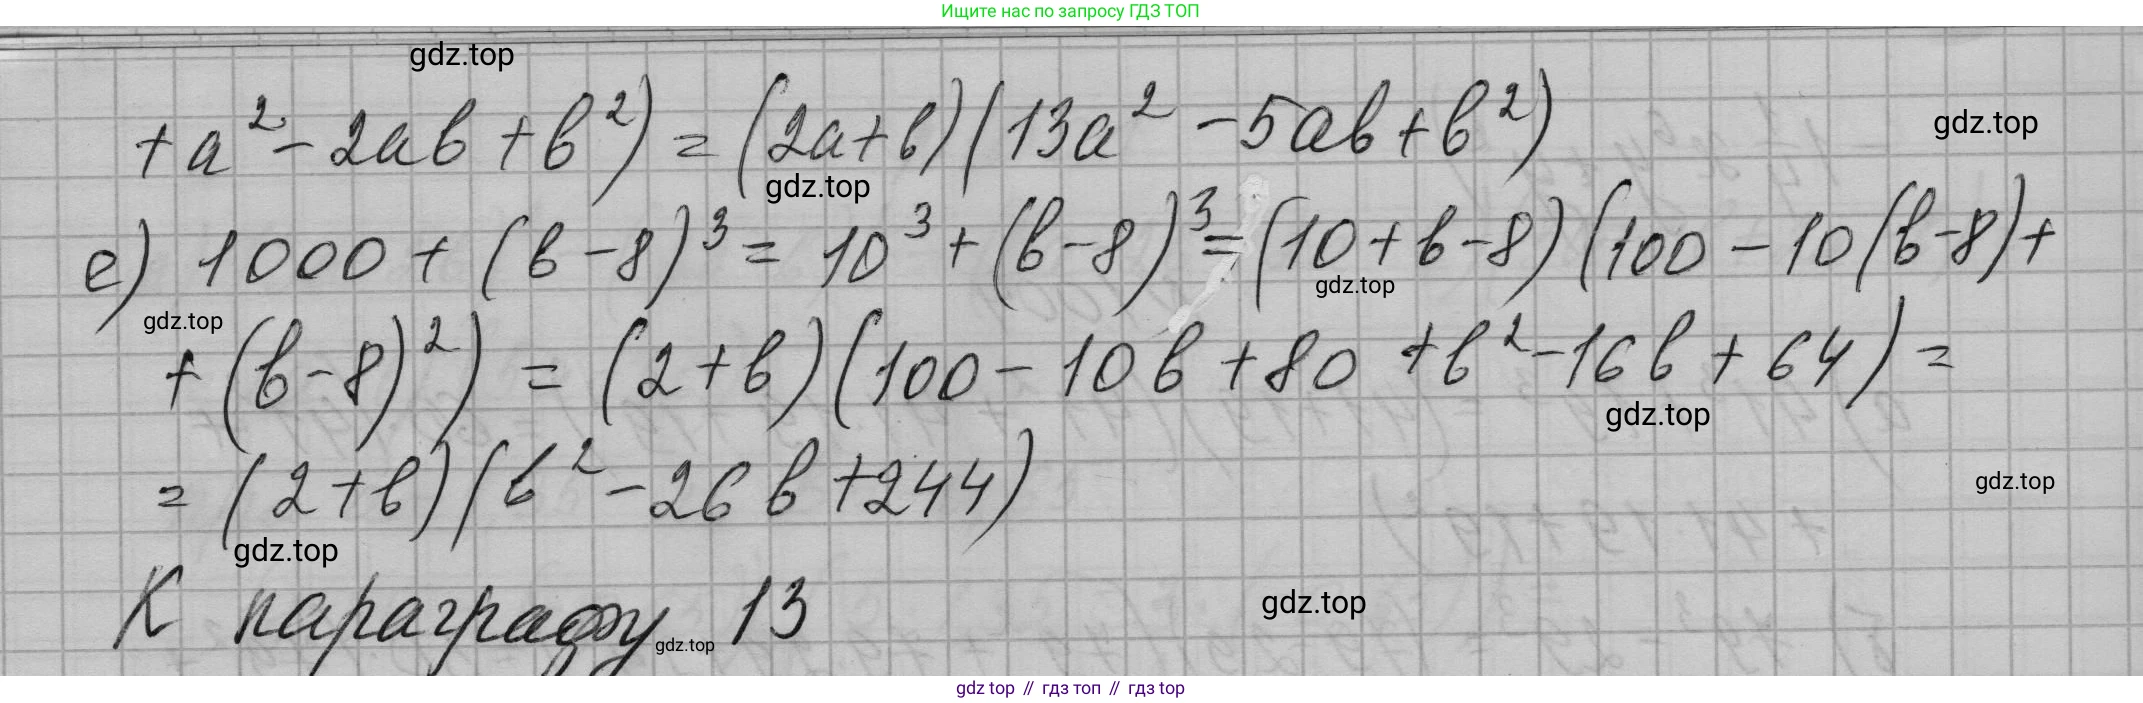 Ищите нас по запросу ГДЗ ТОП
gdz.top
+a² - 2ab + b²) = (2a+b)(13a² - 5ab + b²)
gdz.top
gdz.top
е) 1000 + (b-8)³ = 10³ + (b-8)³ = (10+b-8)(100 - 10(b-8)+
gdz.top
gdz.top
+(b-8)²) = (2+b)(100 - 10b + 80 + b² - 16b + 64) =
gdz.top
= (2+b)(b² - 26b + 244)
gdz.top
gdz.top
К параграфу 13
gdz.top
gdz.top
gdz top // гдз топ // гдз top